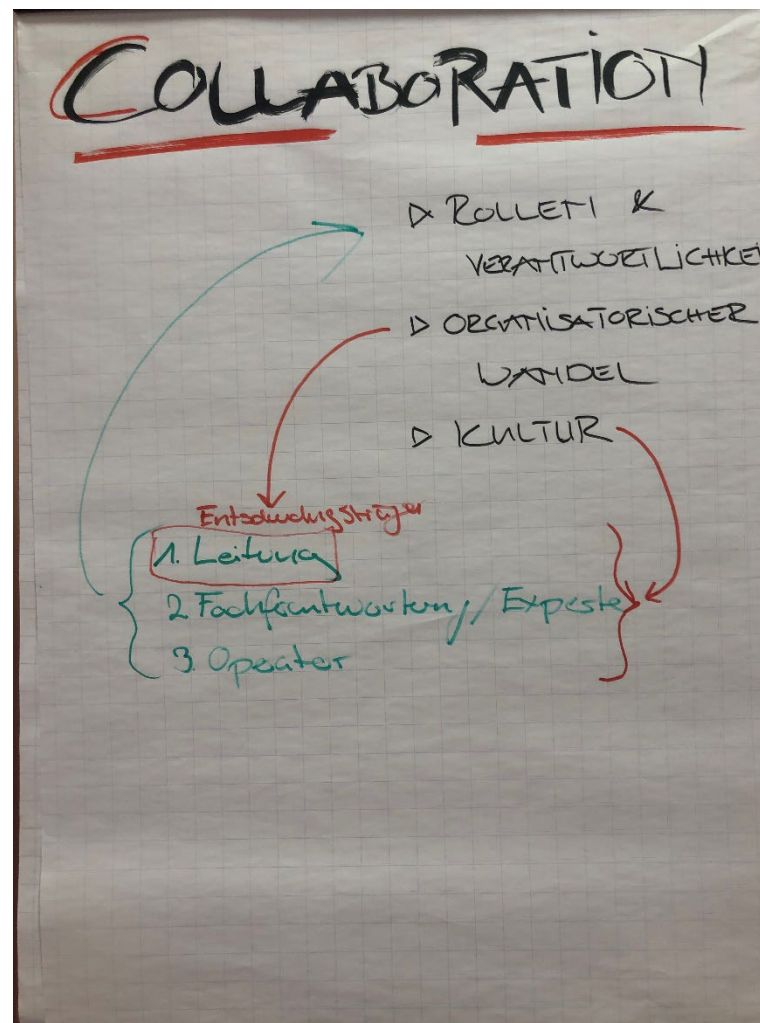 COLLABORATION
▷ ROLLEN &
VERANTWORTLICHKEI
▷ ORGANISATORISCHER
WANDEL
▷ KULTUR
Entscheidungsträger
1. Leitung
2. Fachverantworten / Experte
3. Operator